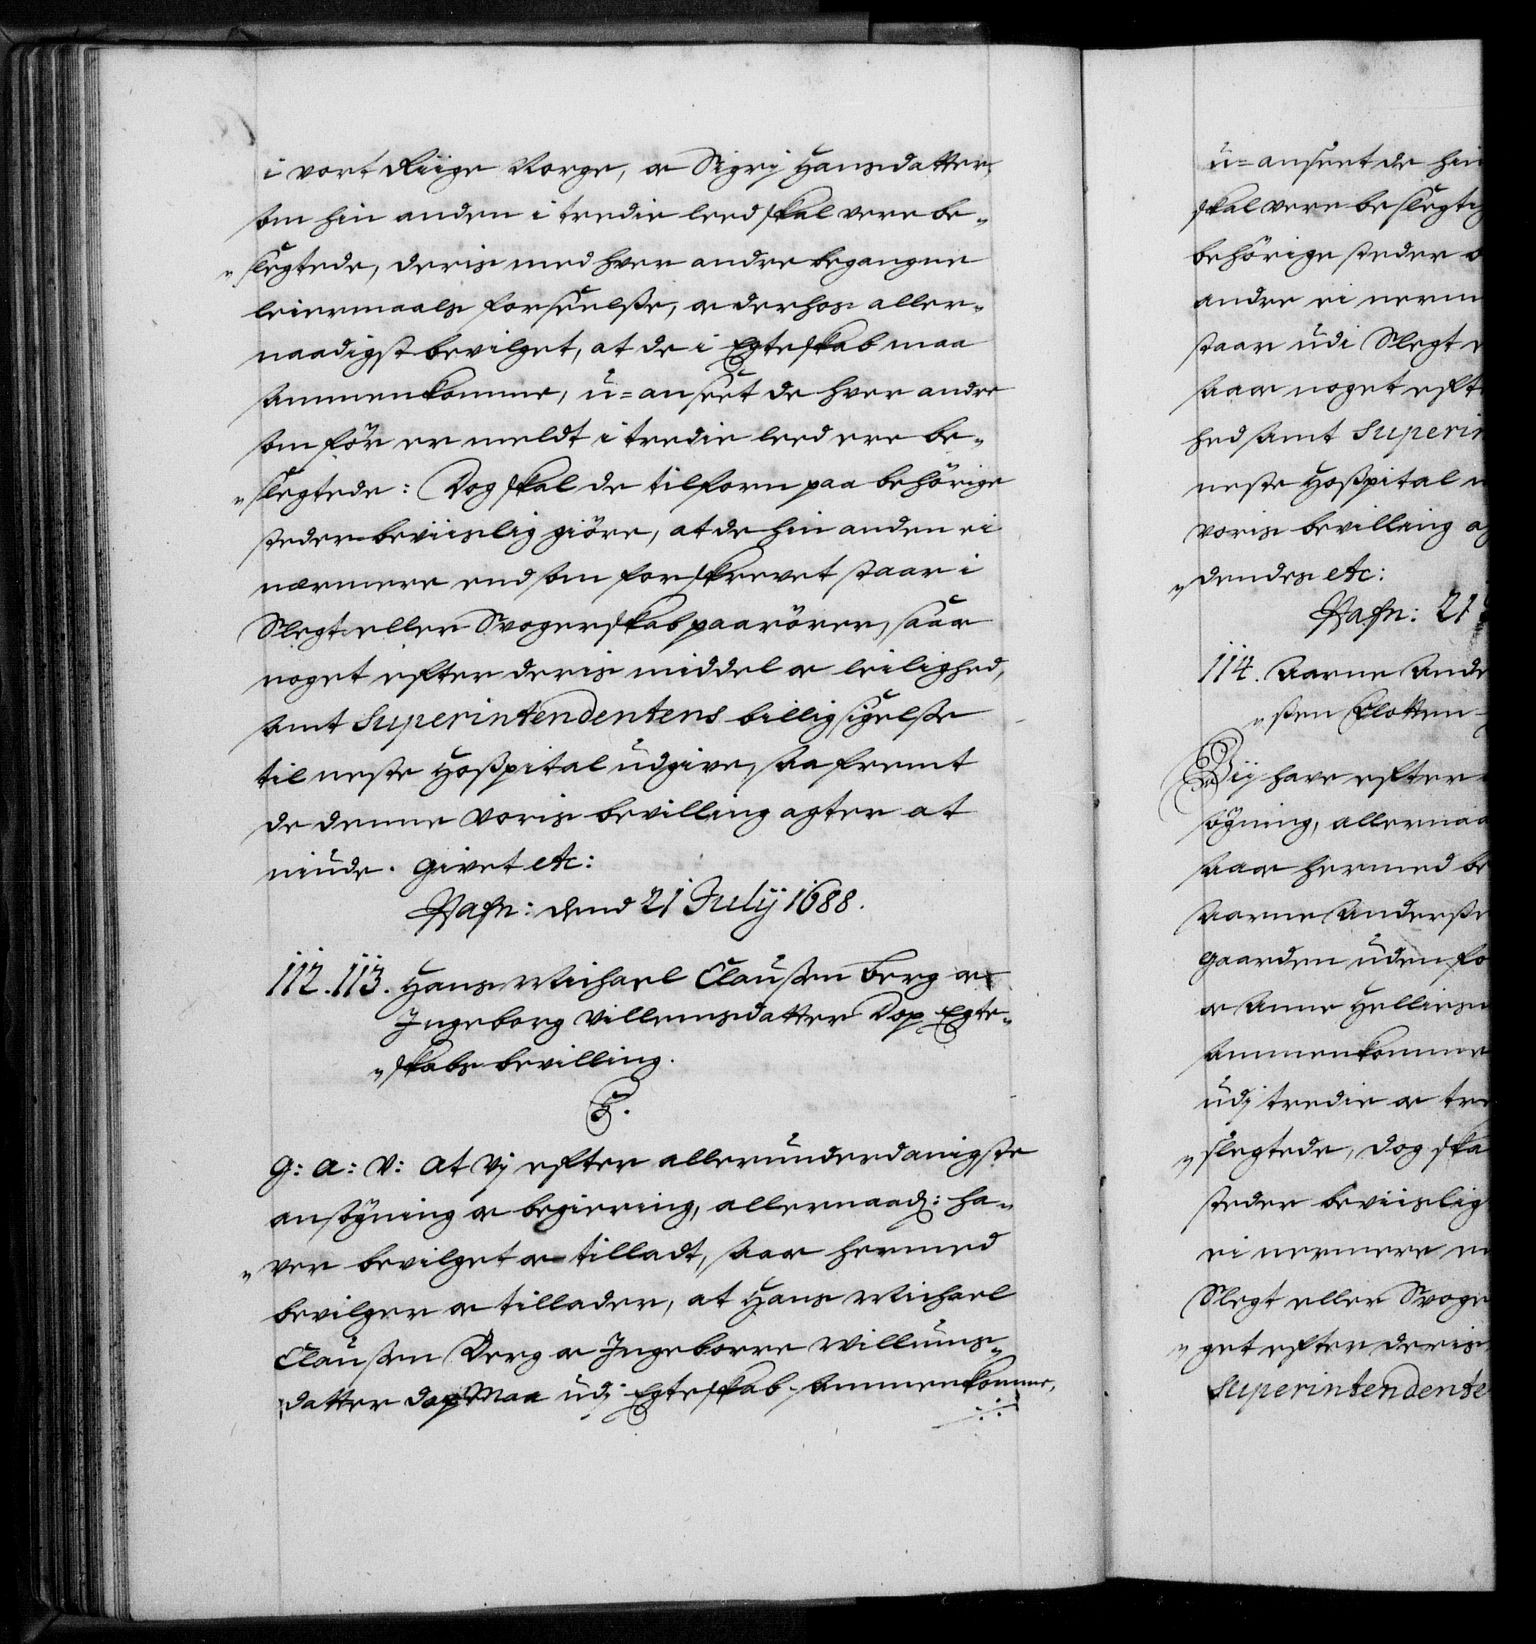 i vort Riige Norge, oc Sigrj Hansdatter,
som hin anden i tredie leed skal vere be„
„slegtede, deris med hver andre begangne
leiermaals forseelsse, oc derhos aller„
naadigst bevilget, at de i Egteskab maa
sammenkomme, u=anseet de hver andre
som för er meldt i tredie leed ere be„
„slegtede: Dog skal de tilforn paa behörige
steder beviislig giöre, at de hin anden ei
nærmere end som forskrevet staar i
Slegt eller Svogerskab paarörer, saa oc
noget efter deris middel oc leilighed,
samt Superintendentens billig sigelsse
til neste Hosspital udgive, saa fremt
de denne voris bevilling agter at
niude. Givet etc:
Hafn: dend 21 Julij 1688.
112. 113. Hans Michael Claussen Berg oc
Ingeborg Villemsdatter Dop Egte„
„skabs bevilling.
G: A: V: At Vj efter allerunderdanigste
ansögning oc begiering, allernaad: ha„
„ver bevilget oc tilladt, saa oc hermed
bevilger oc tillader, at Hans Michael
Claussen Berg oc Ingeborre Willums„
datter Dop maa udj Egteskab sammenkomme,
u=anseet de hin
skal vere beslegtig
behörige steder
andre ei nerm
staar udi Slegt
saa oc noget eft
hed samt Superin
neste Hosspital
voris bevilling ag
„dendes etc:
Hafn: 21
114. Aarne Ande
„ssen Klotten
Vii have efter
sögning, allernaa
saa oc hermed be
Aarne Andersse
gaarden uden fo
oc Anne Helliesd
sammenkomme
udj tredie oc tre
„slegtede, dog ska
steder beviislig
ei nermere en
Slegt eller Svoge
„get efter deris
Superintendente